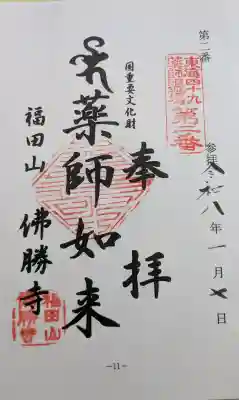 第二番
東海四十九
薬師霊場
第二番
参拝 令和八年一月七日
奉拝
国重要文化財
薬師如来
福田山 佛勝寺
福田山
佛勝寺
-11-